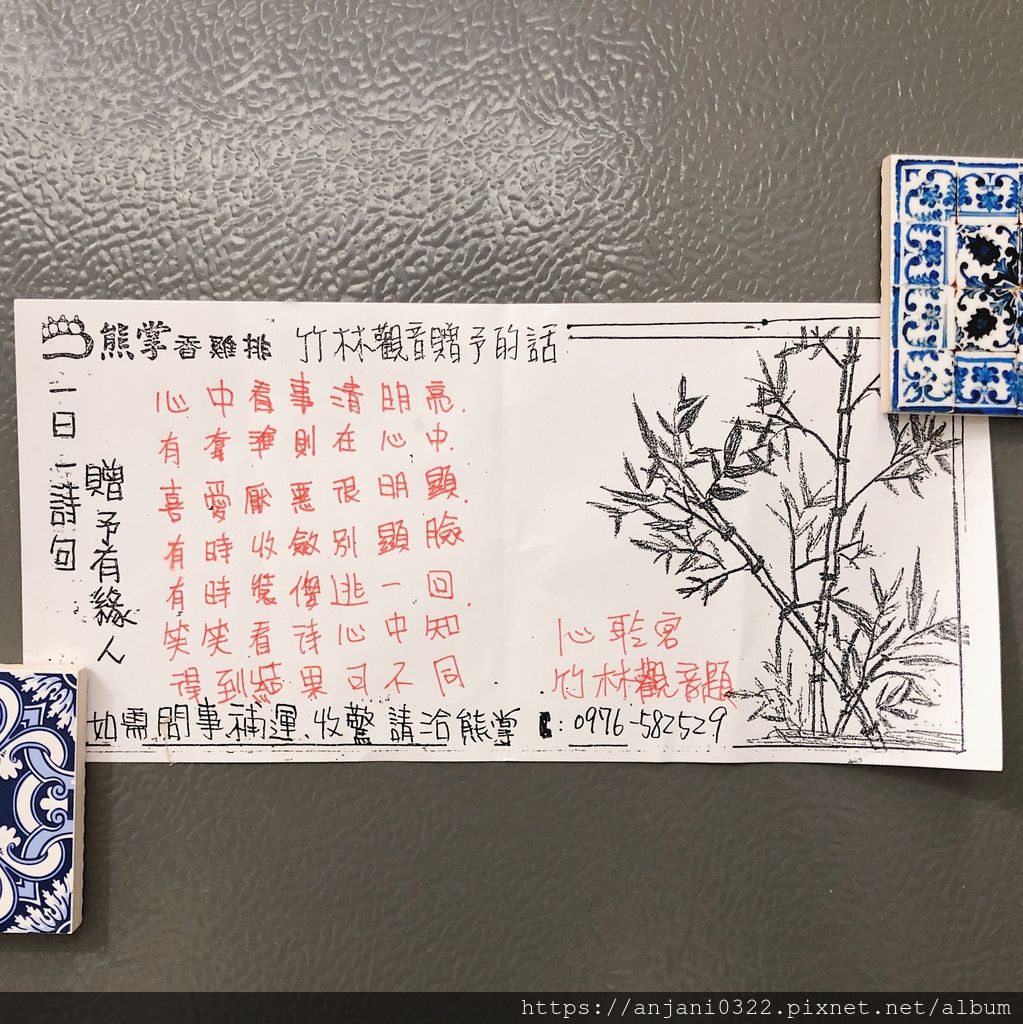 熊掌香雞排 竹林觀音贈予的話
一日一詩句
贈予有緣人
心中看事清明亮.
有套準則在心中.
喜愛厭惡很明顯.
有時收斂別顯臉
有時裝傻逃一回.
笑笑看诗心中知
得到結果可不同
心聆宮
竹林觀音題
如需問事補運、收驚請洽熊掌 : 0976-582529
https://anjani0322.pixnet.net/album